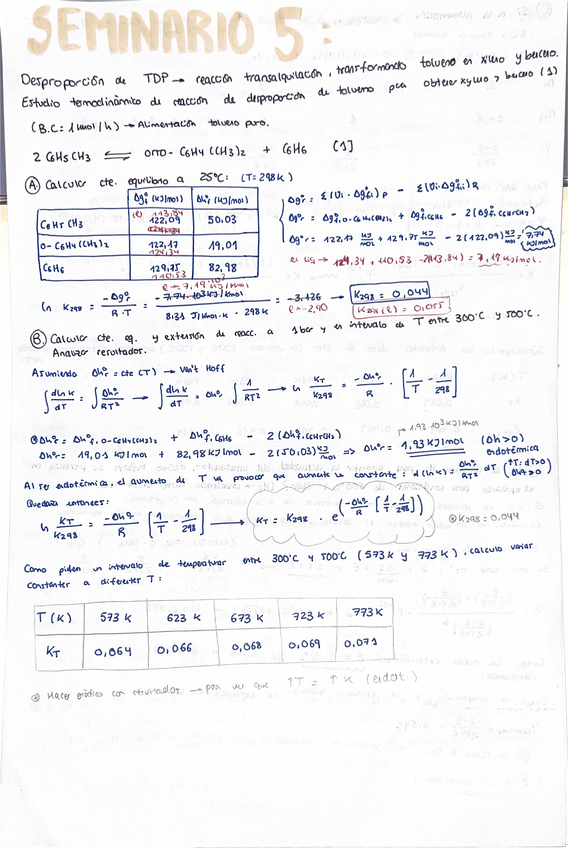 SEMINARIO 5:
Desproporción de TDP → reacción transalquilación, transformando tolueno en xileno y benceno.
Estudio termodinámico de reacción de desproporción de tolueno para obtener xileno y benceno (1)
(B.C: 1 kmol/h) → Alimentación tolueno puro.
2 C6H5CH3 ⇌ orto-C6H4(CH3)2 + C6H6 [1]
(A) Calcular cte. equilibrio a 25°C: (T=298K)
Δg°f (kJ/mol) Δh°f (kJ/mol)
C6H5CH3 (l) 113,84 122,09 50,03
O-C6H4(CH3)2 122,17 124,34 19,01
C6H6 129,75 110,53 82,98
Δg°r = Σ(νi·Δg°f,i)P - Σ(νi·Δg°f,i)R
Δg°r = Δg°f,O-C6H4(CH3)2 + Δg°f,C6H6 - 2(Δg°f,C6H5CH3)
Δg°r = 122,17 kJ/mol + 129,75 kJ/mol - 2(122,09) kJ/mol = 7,74 kJ/mol
→ 124,34 + 110,53 - 2(113,84) = 7,19 kJ/mol.
ln K298 = -Δg°r / R·T = -7,74·10³ kJ/kmol / 8,31 J/kmol·K · 298K = -3,126 → K298 = 0,044
l → 7,19·10³ kJ/kmol l → -2,90 K298(l) = 0,055
(B) Calcular cte. eq. y extensión de reacc. a 1 bar y en intervalo de T entre 300°C y 500°C.
Analizar resultados.
Asumiendo Δh°r = cte (T) → Van't Hoff
∫ dlnK/dT = ∫ Δh°r/RT² → ∫ dlnK/dT = Δh°r ∫ 1/RT² → ln KT/K298 = -Δh°r/R · [1/T - 1/298]
Δh°r = Δh°f,O-C6H4(CH3)2 + Δh°f,C6H6 - 2(Δh°f,C6H5CH3)
→ 1,93·10³ kJ/kmol
Δh°r = 19,01 kJ/mol + 82,98 kJ/mol - 2(50,03) kJ/mol => Δh°r = 1,93 kJ/mol (Δh>0) endotérmica
Al ser endotérmica, el aumento de T va provocar que aumente la constante: d(lnK) = Δh°r/RT² dT (↑T: dT>0 Δh°r>0)
Quedaría entonces:
ln KT/K298 = -Δh°r/R [1/T - 1/298] → KT = K298 · e^(-Δh°r/R [1/T - 1/298]) K298 = 0,044
Como piden un intervalo de temperaturas entre 300°C y 500°C (573K y 773K), calculo varias
constantes a diferentes T:
T(K) 573 K 623 K 673 K 723 K 773K
KT 0,064 0,066 0,068 0,069 0,071
Hacer gráfico con resultados → para ver que ↑T = ↑K (endot)